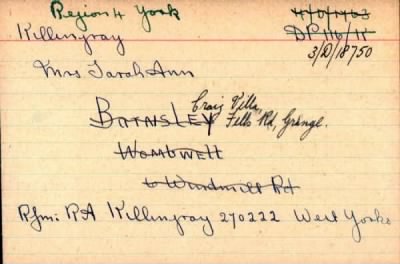 Region 4 York
4/0/1463
Killingray
DP 116/11
3/D/18750
Mrs Sarah Ann
Craig Villa,
BARNSLEY Fells Rd, Grange.
WOMBWELL
6 Windmill Rd
Rfm: RA Killingray 270222 West Yorks